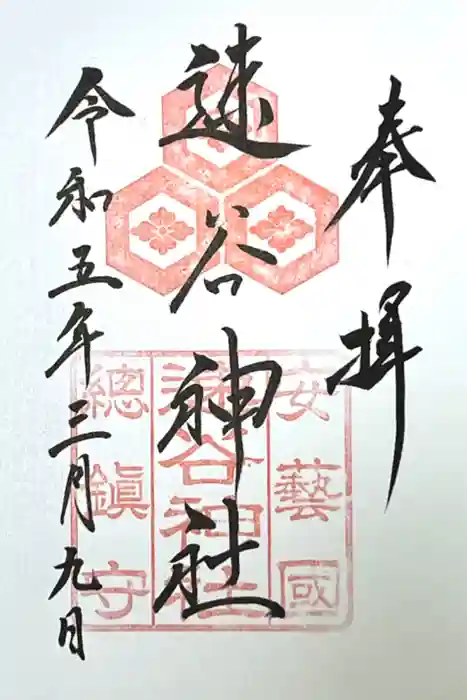 奉拝
速谷神社
令和五年三月九日
安藝國
速谷神社
總鎮守